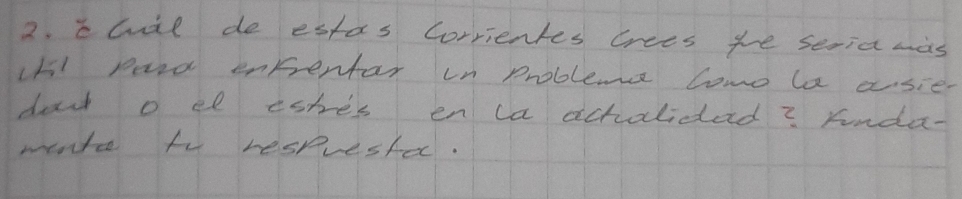 2. ¿ Cuál de estas Corrientes Crees que sería más
útil para enfrentar un problema Como la ansie-
dad o el estrés en la actualidad ? Funda-
menta tu respuesta.